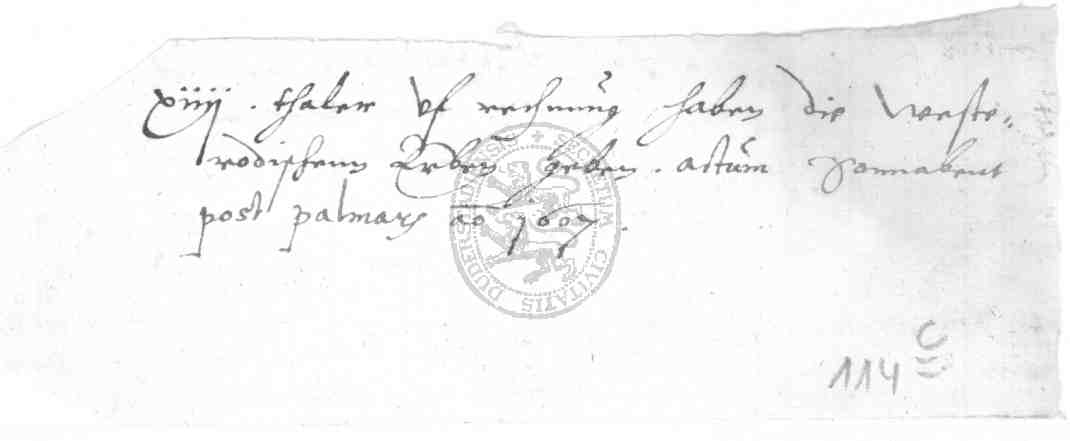 xiiij. thaler vf rechnung haben die Weste„
rodischenn Erben geben. actum Sonnabent
post palmarū ao 1607.
SECRETUM CIVITATIS DUDERSTADENSIS
114 C